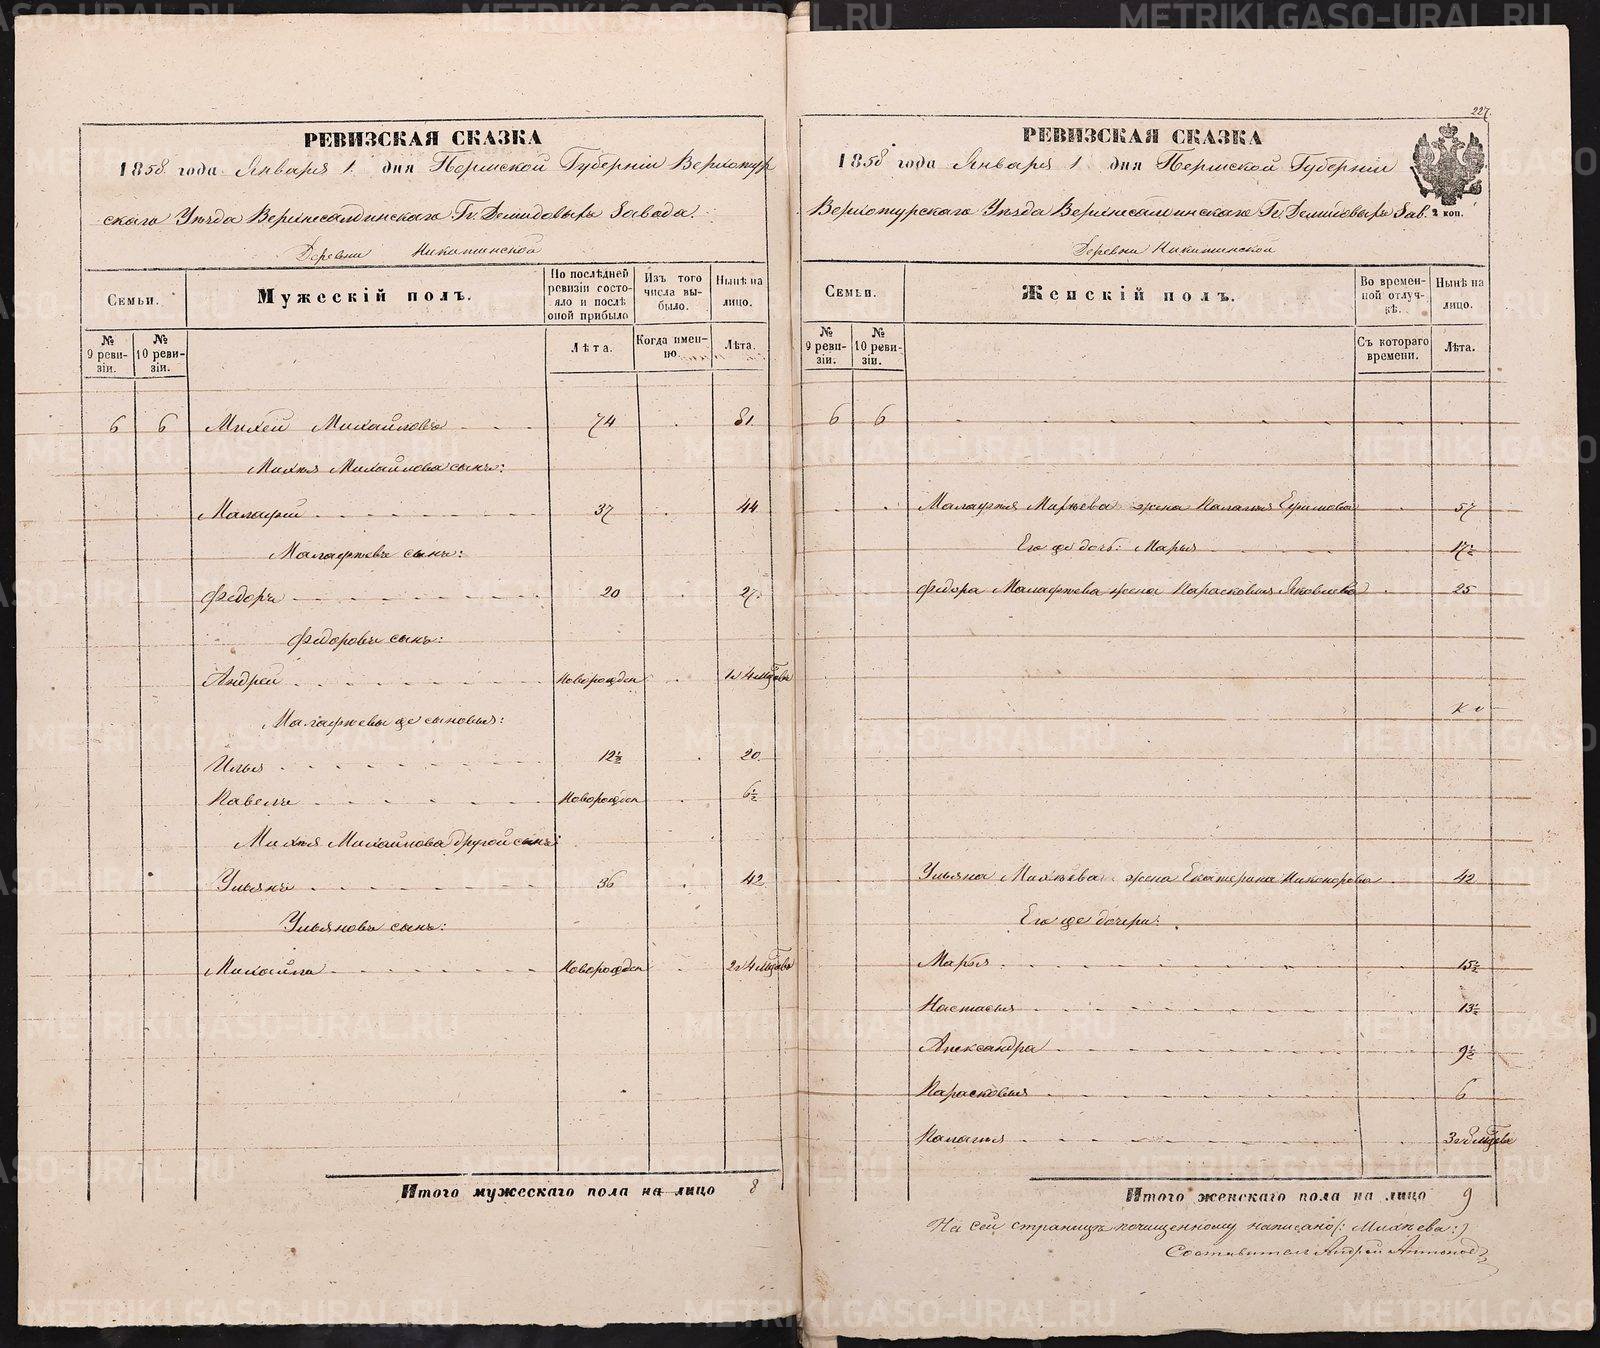 РЕВИЗСКАЯ СКАЗКА
1858 года Января 1 дня Пермской Губернiи Верхотур
скаго Уѣзда Верхнесалдинскаго Гг. Демидовыхъ Завода.
Деревни Никитинской
Семьи.
Мужескiй полъ.
По послѣдней ревизiи состояло и послѣ оной прибыло
Изъ того числа выбыло.
Нынѣ на лицо.
№ 9 ревизiи.
№ 10 ревизiи.
Лѣта.
Когда именно.
Лѣта.
6 6 Михей Михайловъ 74 81
Михея Михайлова сынъ:
Малафей 37 44
Малафѣевъ сынъ:
Федоръ 20 27
Федоровъ сынъ:
Андрей новорожден 1 и 4 мѣсовъ
Малафѣевы же сыновья:
Илья 12½ 20
Павелъ новорожден 6½
Михея Михайлова другой сынъ:
Ульянъ 36 42
Ульяновъ сынъ:
Михайла новорожден 2 и 4 мѣсовъ
Итого мужескаго пола на лицо 8
227
РЕВИЗСКАЯ СКАЗКА
1858 года Января 1 дня Пермской Губернiи
Верхотурскаго Уѣзда Верхнесалдинскаго Гг. Демидовыхъ Зав.
2 коп.
Деревни Никитинской
Семьи.
Женскiй полъ.
Во временной отлучкѣ.
Нынѣ на лицо.
№ 9 ревизiи.
№ 10 ревизiи.
Съ котораго времени.
Лѣта.
6 6
Малафея Михѣева жена Палагея Ефимова 57
Его же дочь: Марья 17½
Федора Малафѣева жена Парасковья Яковлева 25
Ульяна Михѣева жена Екатерина Никонорова 42
Его же дочери:
Марья 15½
Настасья 13½
Александра 9½
Парасковья 6
Палагея 3 и 8 мѣсцевъ
Итого женскаго пола на лицо 9
На сей страницѣ почищенному написано (: Михѣева :)
Составитель Андрей Антонов
METRIKI.GASO-URAL.RU